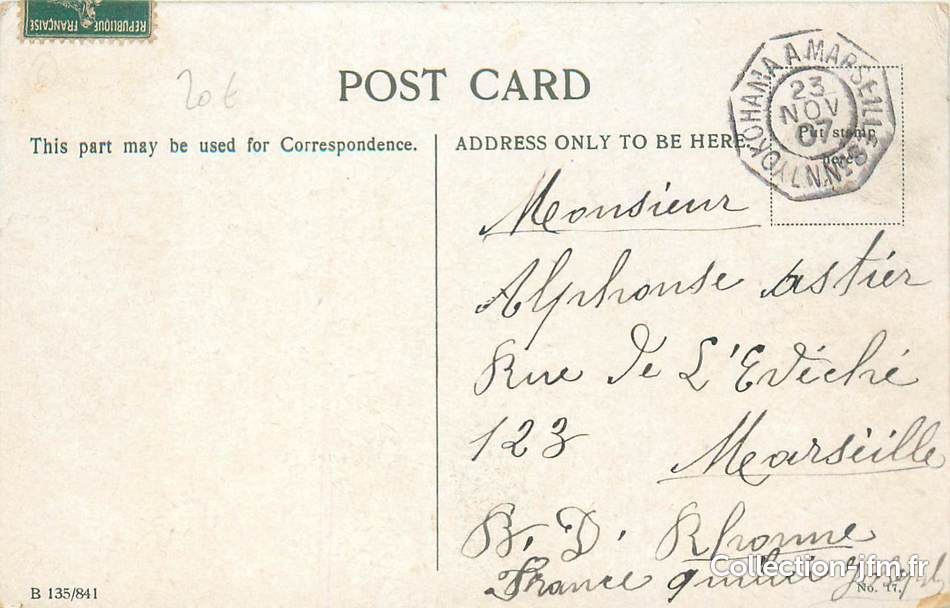 REPUBLIQUE FRANÇAISE
20 €
POST CARD
This part may be used for Correspondence.
ADDRESS ONLY TO BE HERE.
YOKOHAMA A MARSEILLE
23
NOV
07
Put stamp
here
Monsieur
Alphonse Astier
Rue De L'Evéché
123 Marséille
B. D. Rhonne
France
Collection-jfm.fr
B 135/841
No. 17.